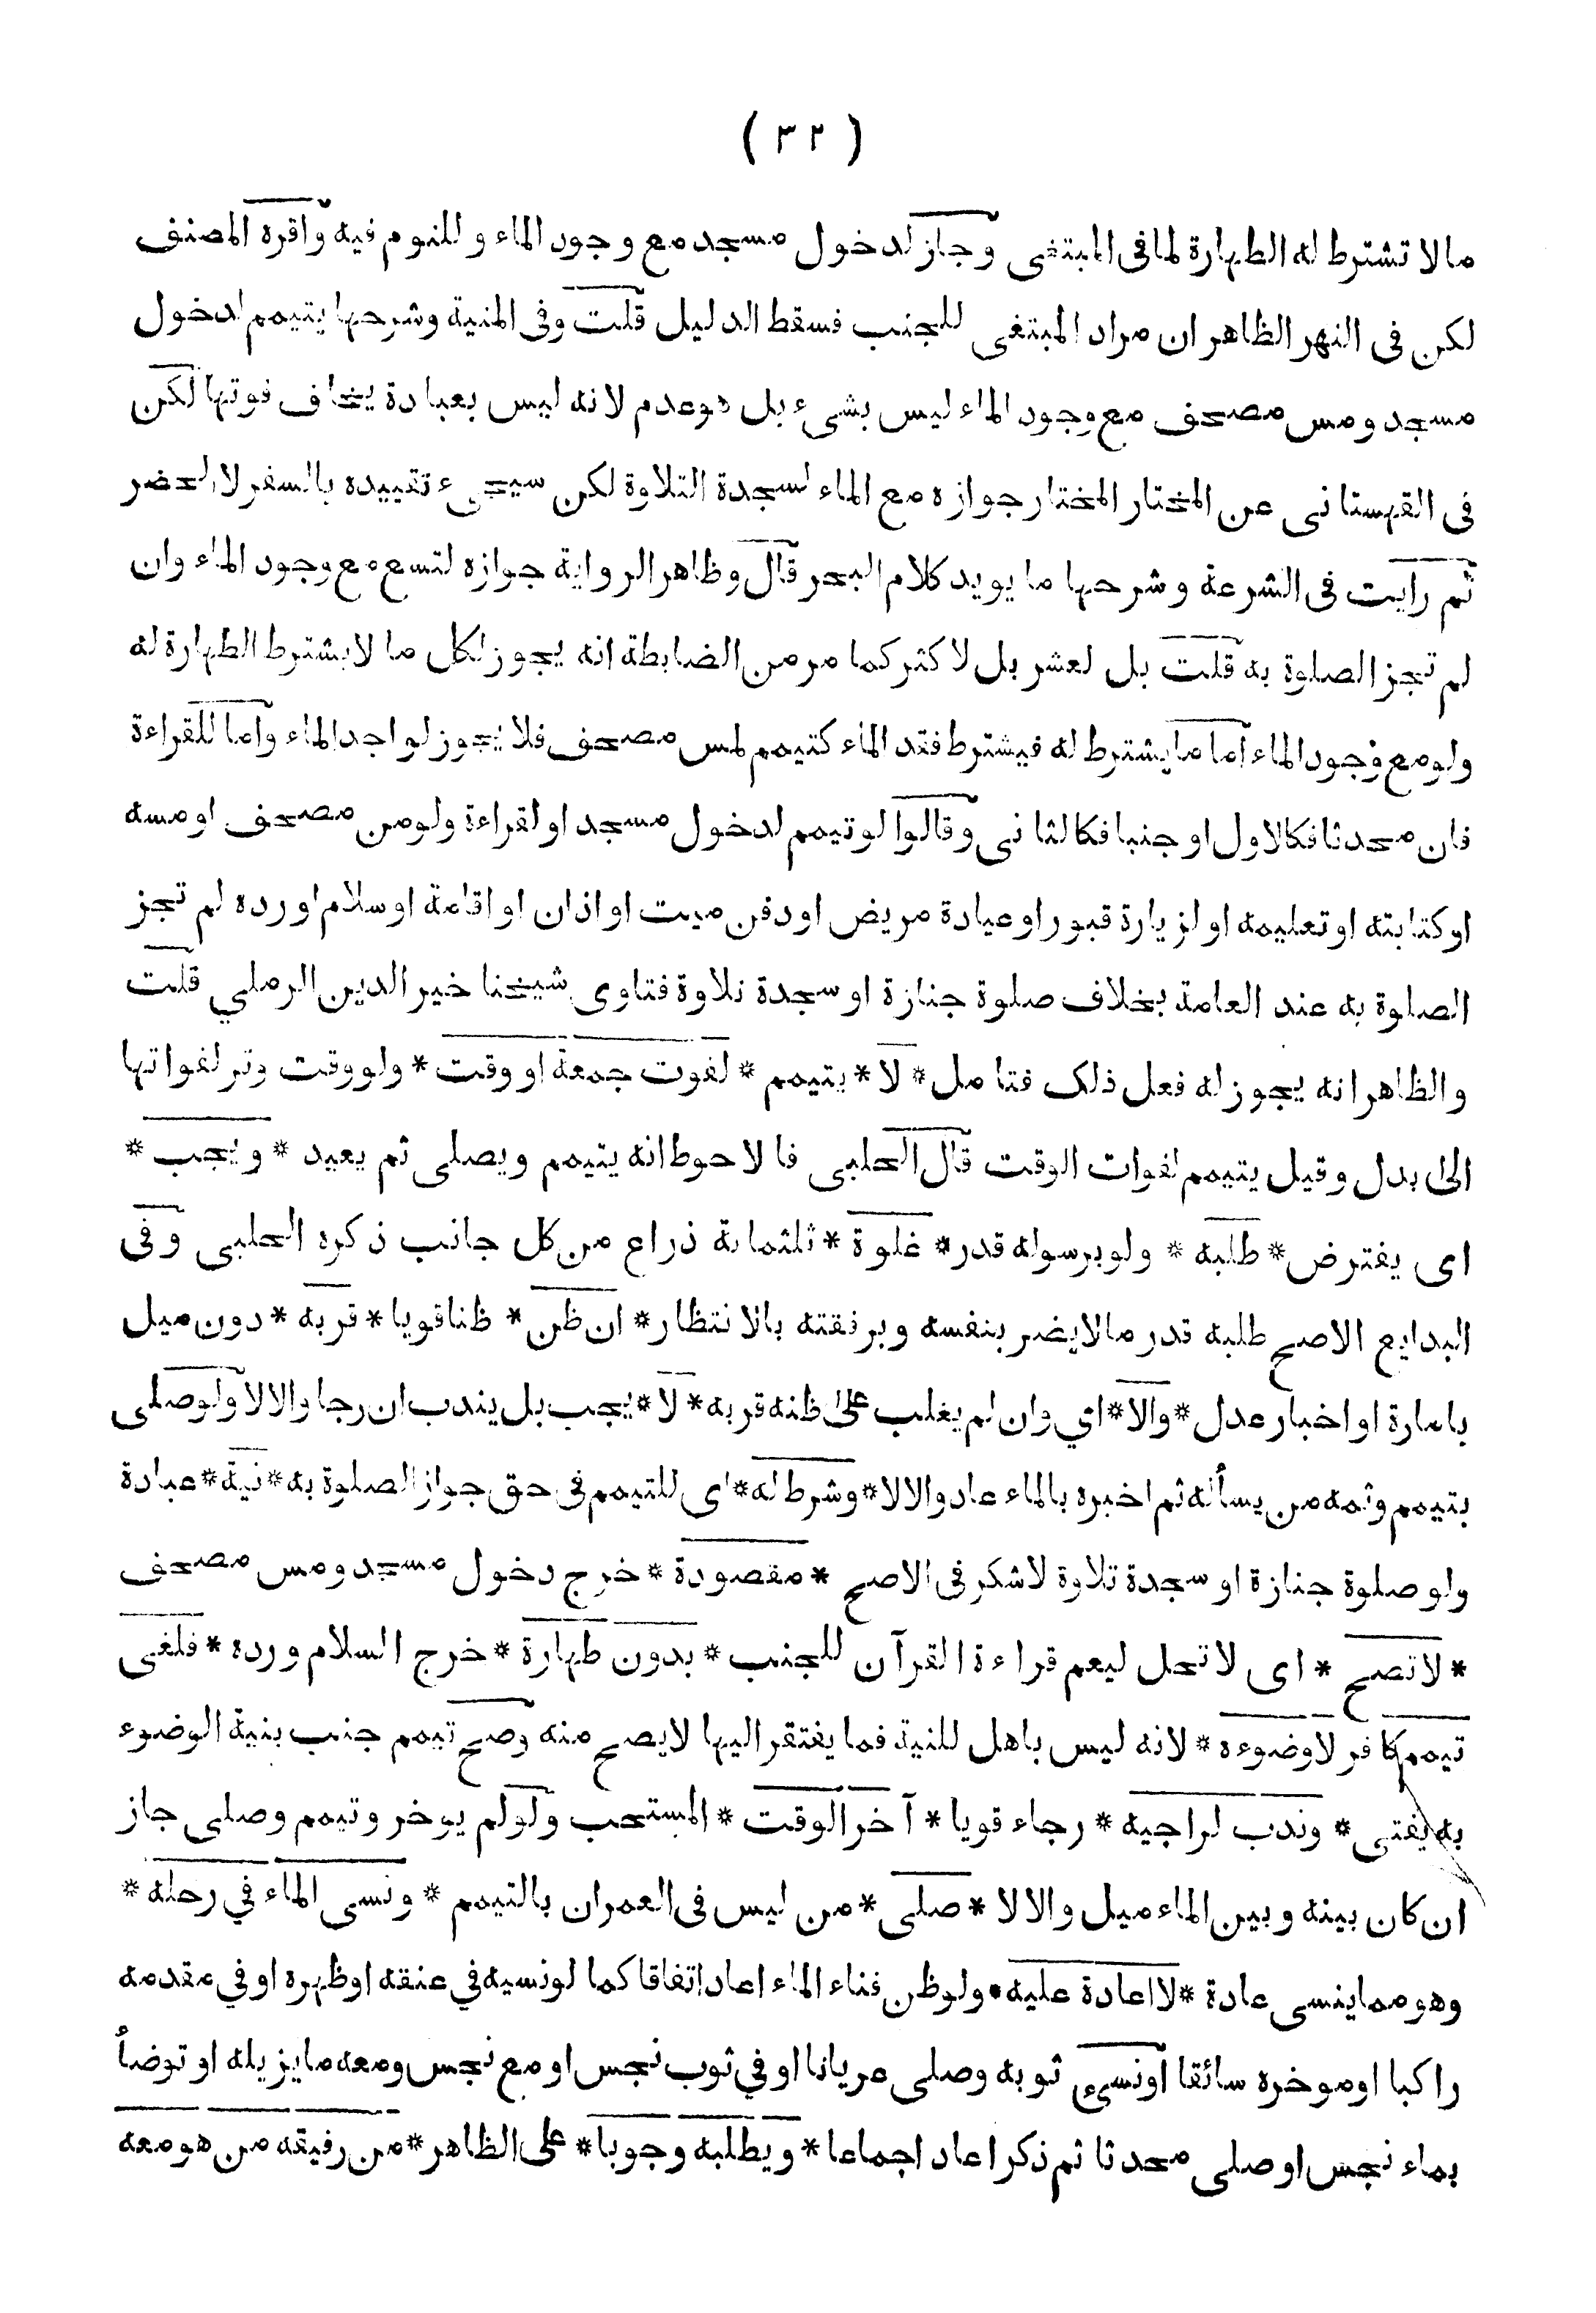 ( ٣٢ )
ما لا تشترط له الطهارة لما فى المبتغى وجاز لدخول مسجد مع وجود الماء وللنوم فيه واقره المصنف
لكن فى النهر الظاهر ان مراد المبتغى للجنب فسقط الدليل قلت وفى المنية وشرحها يتيمم لدخول
مسجد ومس مصحف مع وجود الماء ليس بشىء بل هو عدم لانه ليس بعبادة يخاف فوتها لكن
فى القهستانى عن المختار المختار جوازه مع الماء لسجدة التلاوة لكن سيجىء تقييده بالسفر لا الحضر
ثم رايت فى الشرعة وشرحها ما يويد كلام البحر قال وظاهر الرواية جوازه لتسع مع وجود الماء وان
لم تجز الصلوة به قلت بل لعشر بل لاكثر كما مر من الضابطة انه يجوز لكل ما لا يشترط الطهارة له
ولو مع وجود الماء اما ما يشترط له فيشترط فقد الماء كتيمم لمس مصحف فلا يجوز لواجد الماء واما للقراءة
فان محدثا فكالاول او جنبا فكالثانى وقالوا لو تيمم لدخول مسجد او لقراءة ولو من مصحف او مسه
او كتابته او تعليمه او لزيارة قبور او عيادة مريض او دفن ميت او اذان او اقامة او سلام او رده لم تجز
الصلوة به عند العامة بخلاف صلوة جنازة او سجدة تلاوة فتاوى شيخنا خير الدين الرملي قلت
والظاهر انه يجوز له فعل ذلك فتامل * لا * يتيمم * لفوت جمعة او وقت * ولو وقت وتر لفواتها
الى بدل وقيل يتيمم لفوات الوقت قال الحلبى فالاحوط انه يتيمم ويصلى ثم يعيد * ويجب *
اى يفترض * طلبه * ولو برسوله قدر * غلوة * ثلثمائة ذراع من كل جانب ذكره الحلبى وفى
البدايع الاصح طلبه قدر ما لا يضر بنفسه وبرفقته بالانتظار * ان ظن * ظنا قويا * قربه * دون ميل
بامارة او اخبار عدل * والا * اي وان لم يغلب على ظنه قربه * لا * يجب بل يندب ان رجا والا لا ولو صلى
بتيمم وثمه من يسأله ثم اخبره بالماء عاد والا لا * وشرط له * اى للتيمم فى حق جواز الصلوة به * نية * عبادة
ولو صلوة جنازة او سجدة تلاوة لا شكر فى الاصح * مقصودة * خرج دخول مسجد ومس مصحف
* لا تصح * اى لا تحل ليعم قراءة القرآن للجنب * بدون طهارة * خرج السلام ورده * فلغى
تيمم كافر لا وضوءه * لانه ليس باهل للنية فما يفتقر اليها لا يصح منه وصح تيمم جنب بنية الوضوء
به يفتى * وندب لراجيه * رجاء قويا * آخر الوقت * المستحب ولو لم يوخر وتيمم وصلى جاز
ان كان بينه وبين الماء ميل والا لا * صلى * من ليس فى العمران بالتيمم * ونسى الماء في رحله *
وهو مما ينسى عادة * لا اعادة عليه * ولو ظن فناء الماء اعاد اتفاقا كما لو نسيه في عنقه او ظهره او في مقدمه
راكبا او موخره سائقا او نسىء ثوبه وصلى عريانا او في ثوب نجس او مع نجس ومعه ما يزيله او توضأ
بماء نجس او صلى محدثا ثم ذكر اعاد اجماعا * ويطلبه وجوبا * على الظاهر * من رفيقه من هو معه